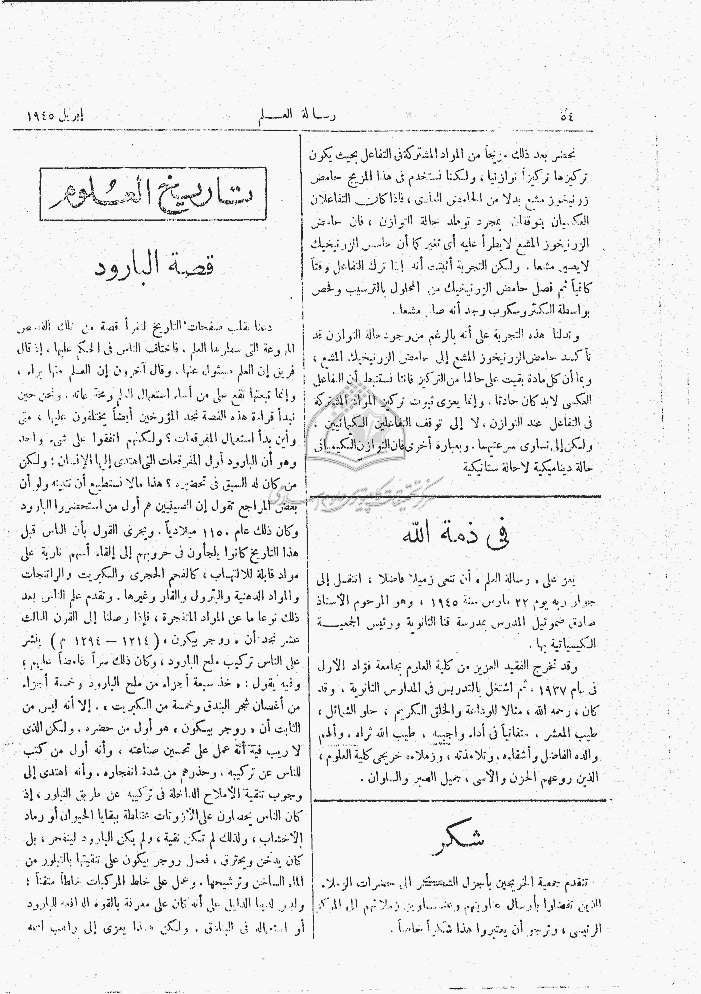 ٥٤
رسالة العلم
إبريل ١٩٤٥
نحضر بعد ذلك مزيجاً من المواد المشتركة فى التفاعل بحيث يكون
تركيزها تركيزاً توازنيا ، ولكننا نستخدم فى هذا المزيج حامض
زرنيخوز مشع بدلا من الحامض العادى ، فاذا كان التفاعلان
العكسيان يتوقفان بمجرد توطد حالة التوازن ، فان حامض
الزرنيخوز المشع لا يطرأ عليه أى تغير كما أن حامض الزرنيخيك
لا يصير مشعا . ولكن التجربة أثبتت أنه إذا ترك التفاعل وقتاً
كافياً ثم فصل حامض الزرنيخيك من المحلول بالترسيب وفحص
بواسطة الكتروسكوب وجد أنه صار مشعا .
وتدلنا هذه التجربة على أنه بالرغم من وجود حالة التوازن قد
تأكسد حامض الزرنيخوز المشع إلى حامض الزرنيخيك المشع ،
وبما أن كل مادة بقيت على حالها من التركيز فاننا نستنبط أن التفاعل
العكسى لابد كان حادثا . وإنما يعزى ثبوت تركيز المواد المشتركة
فى التفاعل عند التوازن ، لا إلى توقف التفاعلين الكيميائيين ،
ولكن إلى تساوى سرعتيهما . وبعبارة أخرى فان التوازن الكيميائى
حالة ديناميكية لا حالة ستاتيكية
فى ذمة الله
يعز على « رسالة العلم » أن تنعى زميلا فاضلا ، انتقل إلى
جوار ربه يوم ٢٢ مارس سنة ١٩٤٥ ، وهو المرحوم الأستاذ
صادق صموئيل المدرس بمدرسة قنا الثانوية ورئيس الجمعية
الكيميائية بها .
وقد تخرج الفقيد العزيز من كلية العلوم بجامعة فؤاد الأول
فى عام ١٩٣٧ . ثم اشتغل بالتدريس فى المدارس الثانوية ، وقد
كان ، رحمه الله ، مثالا للوداعة والخلق الكريم ، حلو الشمائل ،
طيب المعشر ، متفانياً فى أداء واجبه . طيب الله ثراه ، وألهم
والده الفاضل وأشقاءه ، وتلامذته ، وزملاءه خريجى كلية العلوم ،
الذين روعهم الحزن والأسى ، جميل الصبر والسلوان .
شكر
تتقدم جمعية الخريجين بأجزل الشكر الى حضرات الزملاء
الذين تفضلوا بأرسال عناوينهم وعناوين زملائهم الى المركز
الرئيسى ، وترجو أن يعتبروا هذا شكراً خاصاً .
تاريخ العلوم
قصة البارود
دعنا نقلب صفحات التاريخ لنقرأ قصة من تلك القصص
المروعة التى سطرها العلم ، فاختلف الناس فى الحكم عليها ، إذ قال
فريق إن العلم مسئول عنها . وقال آخرون إن العلم منها براء ،
وإنما تبعتها تقع على من أساء استعمال العلم ومخترعاته . ونحن حين
نبدأ قراءة هذه القصة نجد المؤرخين أيضاً يختلفون عليها ، متى
وأين بدأ استعمال المفرقعات ؛ ولكنهم اتفقوا على شىء واحد
وهو أن البارود أول المفرقعات التى اهتدى إليها الإنسان ؛ ولكن
من كان له السبق فى تحضيره ؟ هذا مالا نستطيع أن نتبينه ولو أن
بعض المراجع تقول إن الصينيين هم أول من استحضروا البارود
وكان ذلك عام ١١٥٠ ميلادياً . ويحرى القول بأن الناس قبل
هذا التاريخ كانوا يلجأون فى حروبهم إلى إلقاء أسهم نارية على
مواد قابلة للالتهاب ، كالفحم الحجرى والكبريت والراتنجات
والمواد الدهنية والبترول والقار وغيرها . وتقدم علم الناس بعد
ذلك نوعا ما عن المواد المتفجرة ، فإذا وصلنا إلى القرن الثالث
عشر نجد أن « روجر بيكون » ( ١٢١٤ — ١٢٩٤ م ) ينشر
على الناس تركيب ملح البارود ، وكان ذلك سراً غامضاً عليهم ؛
وفيه يقول : « خذ سبعة أجزاء من ملح البارود وخمسة أجزاء
من أغصان شجر البندق وخمسة من الكبريت » . إلا أنه ليس من
الثابت أن « روجر بيكون » هو أول من حضره . ولكن الذى
لا ريب فيه أنه عمل على تحسين صناعته ، وأنه أول من كتب
للناس عن تركيبه . وحذرهم من شدة انفجاره . وأنه اهتدى إلى
وجوب تنقية الأملاح الداخلة فى تركيبه عن طريق التبلور ، إذ
كان الناس يحصلون على الأزوتات مختلطة ببقايا الحيوان أو رماد
الأخشاب ، ولذلك لم تكن نقية ، ولم يكن البارود لينفجر ، بل
كان يدخن ويحترق ، فعمل روجر بيكون على تنقيتها بالتبلور من
الماء الساخن وترشيحها . وعمل على خلط المركبات خلطاً متقناً ؛
وليس لدينا الدليل على أنه كان على معرفة بالقوة الدافعة للبارود
أو استعماله فى البنادق . ولكن هذا يعزى إلى راهب اسمه